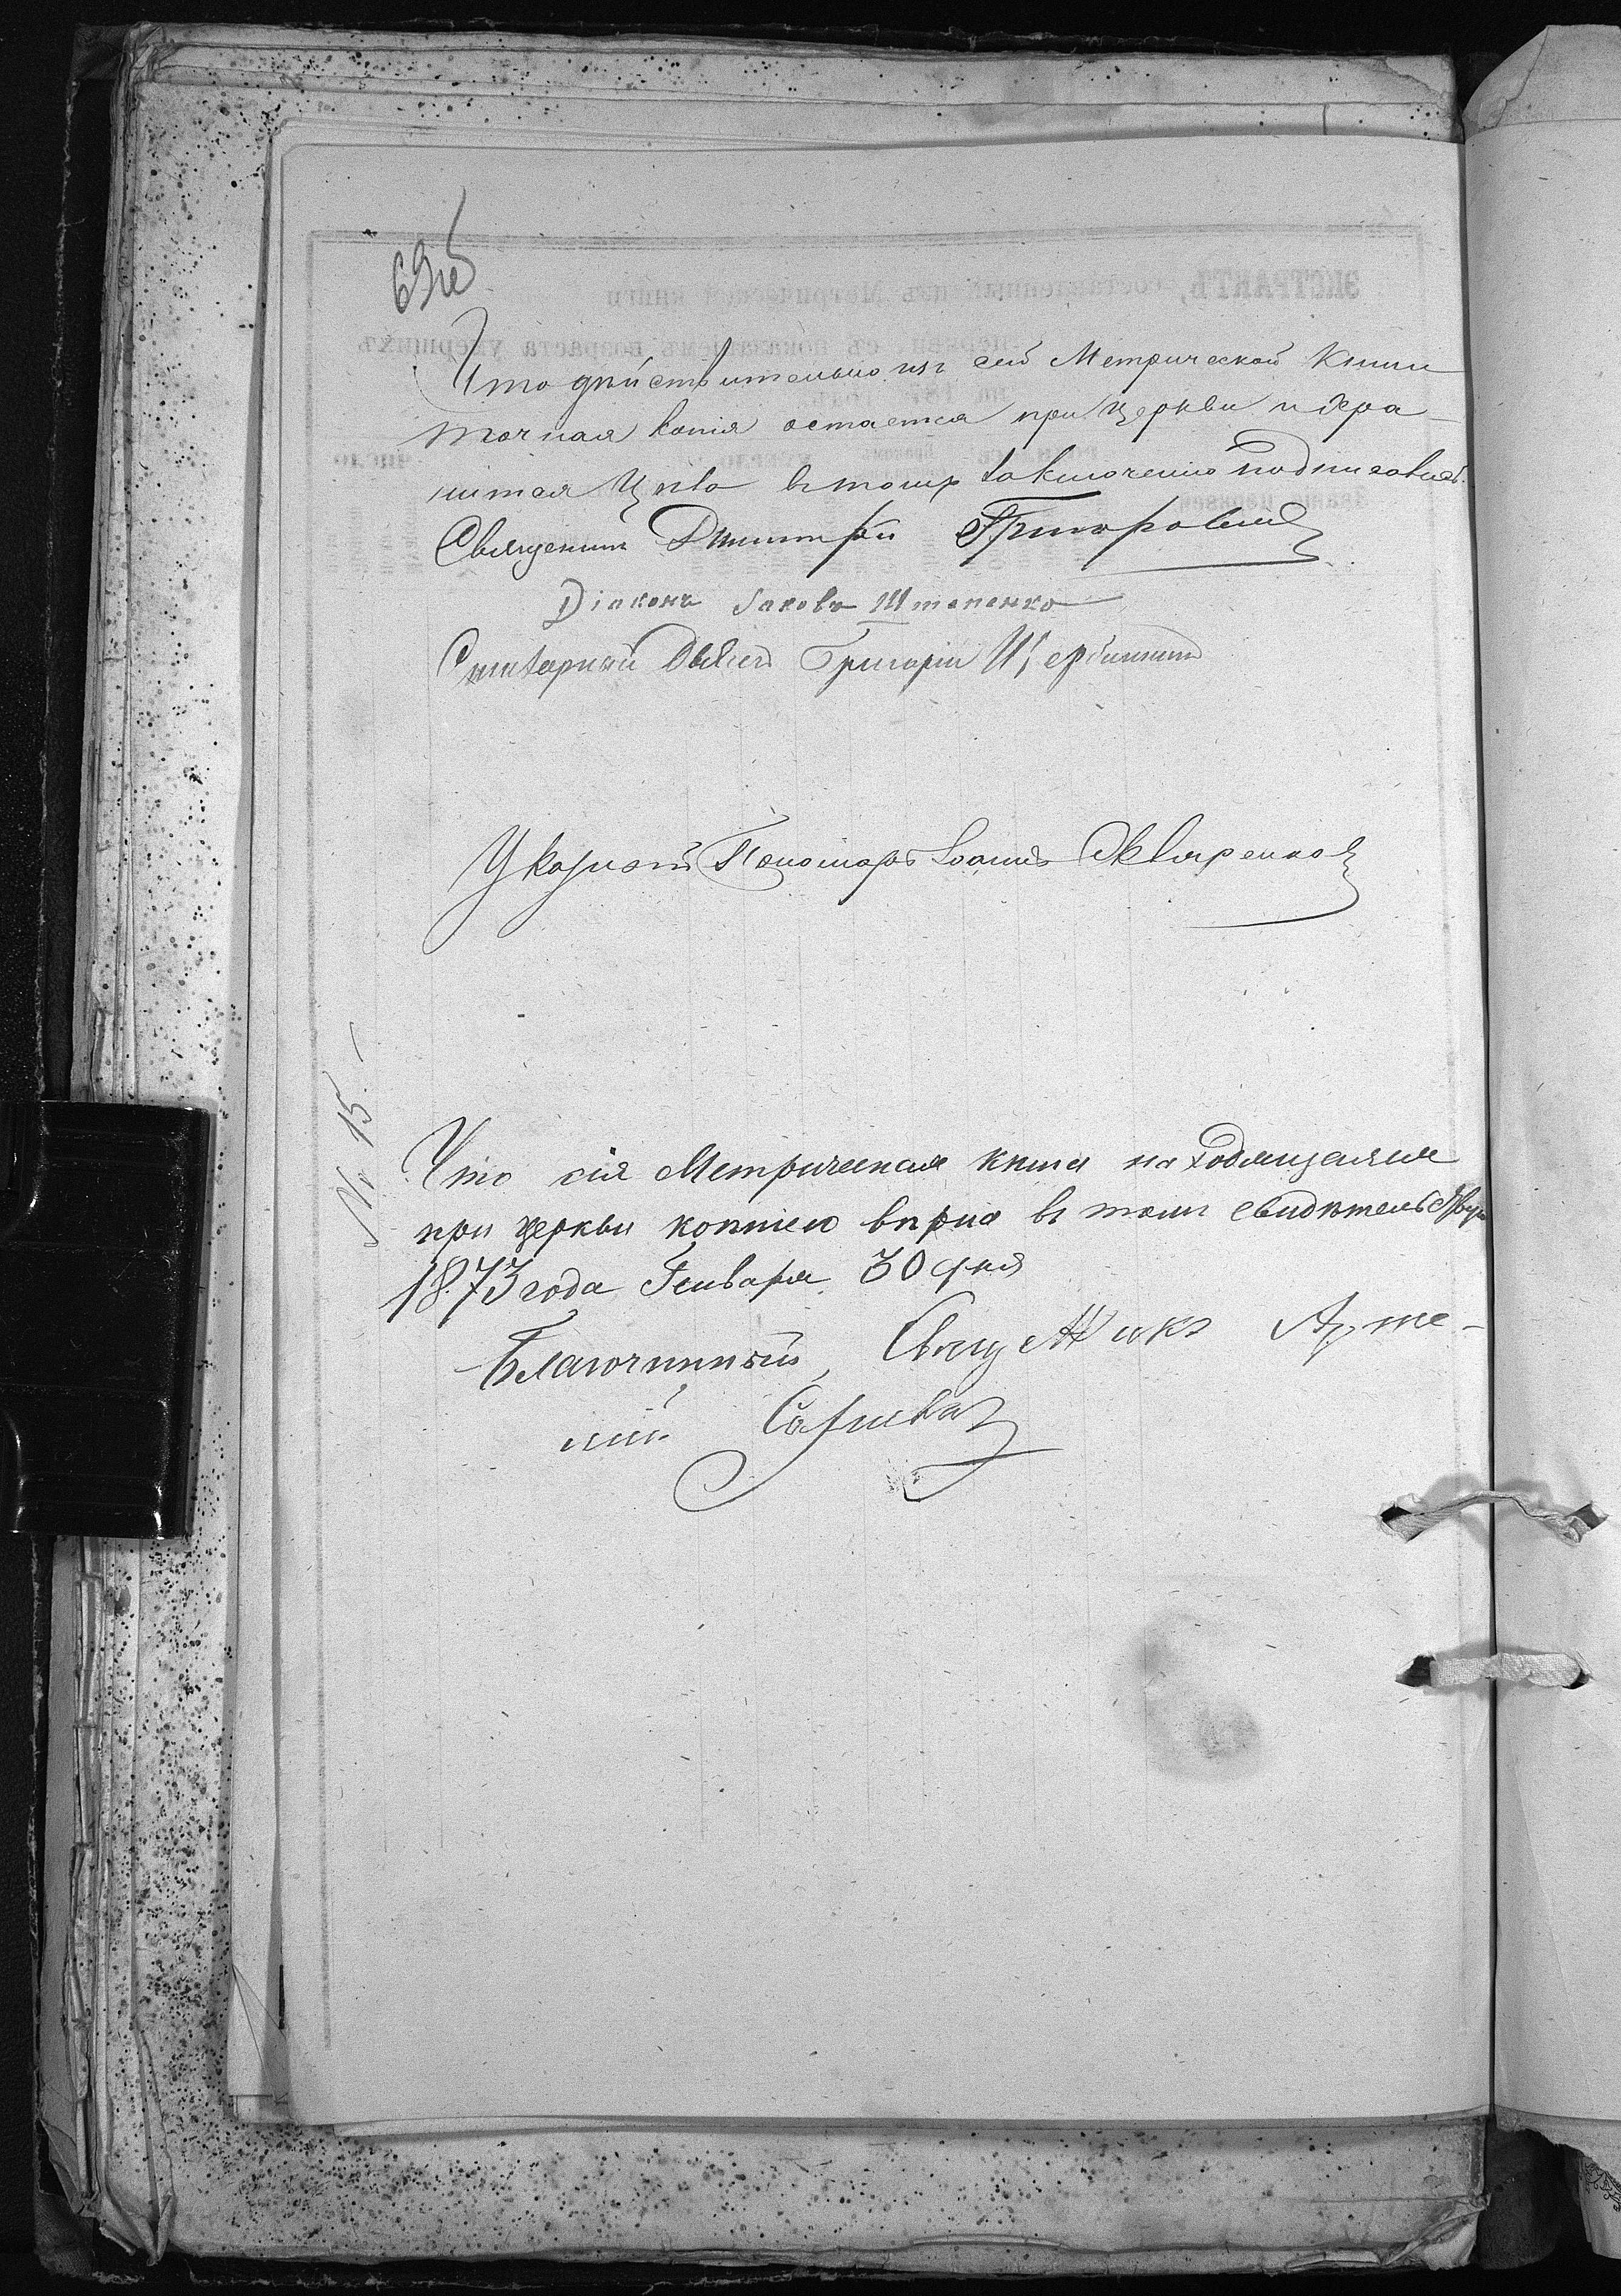 69 об
Что дѣйствительно изъ сей Метрической Книги
точная копія остается при Церкви и хра-
нится въ томъ заключенію подписались
Священникъ Димитрій Григоровичъ
Діаконъ Іаковъ Штепенко
Григорій Щербининъ
Указной Пономарь Іоаннъ Скляренко
№ 15.
Что сія Метрическая книга находящеюся
при церкви копіею вѣрна въ томъ свидѣтельствую
1873 года Генваря 30 дня
Благочинный, Свящ